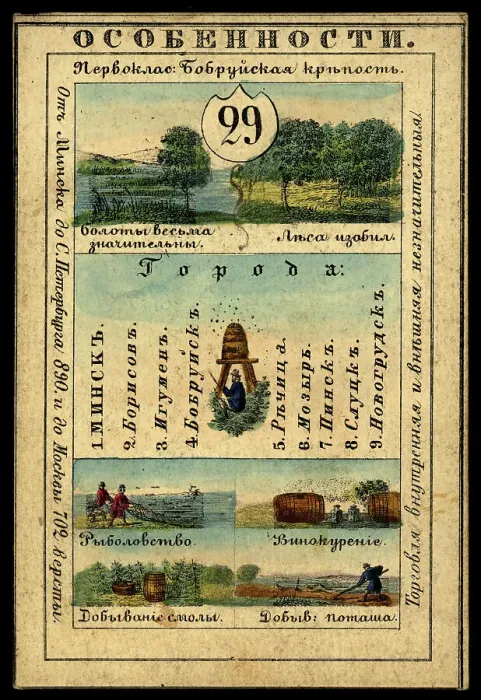 ОСОБЕННОСТИ.
Первоклас: Бобруйская крѣпость.
29
болоты весьма
значительны.
Лѣса изобил.
Города:
1. МИНСКЪ.
2. Борисовъ.
3. Игуменъ.
4. Бобруйскъ.
5. Рѣчица.
6. Мозырь.
7. Пинскъ.
8. Слуцкъ.
9. Новогрудскъ.
Рыболовство.
Винокуреніе.
Добываніе смолы.
Добыв: поташа.
Отъ Минска до С. Петербурга 890. и до Москвы 702. версты.
Торговля внутренняя и внѣшняя незначительныя.